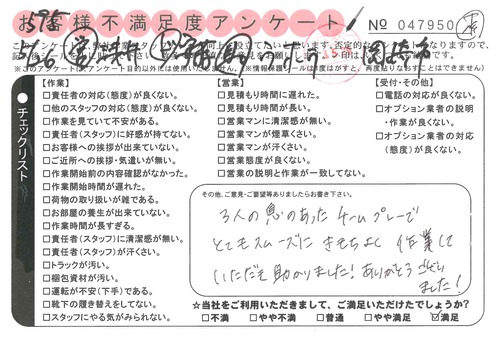 お客様不満足度アンケート
No 047950
【作業】
□責任者の対応(態度)が良くない。
□他のスタッフの対応(態度)が良くない。
□作業を見ていて不安がある。
□責任者(スタッフ)に好感が持てない。
□お客様への挨拶が出来ていない。
□ご近所への挨拶・気遣いが無い。
□作業開始前の内容確認がなかった。
□作業開始時間が遅れた。
□荷物の取り扱いが雑である。
□お部屋の養生が出来ていない。
□作業時間が長すぎる。
□責任者(スタッフ)に清潔感が無い。
□責任者(スタッフ)が汗くさい。
□トラックが汚い。
□梱包資材が汚い。
□運転が不安(下手)である。
□靴下の履き替えをしてない。
□スタッフにやる気がみられない。
【営業】
□見積もり時間に遅れた。
□見積もり時間が長い。
□営業マンに清潔感が無い。
□営業マンが煙草くさい。
□営業マンが汗くさい。
□営業態度が良くない。
□営業の説明と作業が一致してない。
【受付・その他】
□電話の対応が良くない。
□オプション業者の説明
・作業が良くない。
□オプション業者の対応
(態度)が良くない。
チェックリスト
その他、ご意見・ご要望等ありましたらお書き下さい。
3人の息のあった チームプレーで
とてもスムーズに きもちよく 作業して
いただき助かりました! ありがとうござい
ました!
☆当社をご利用いただきまして、ご満足いただけたでしょうか?
□不満 □やや不満 □普通 □やや満足 ☑満足